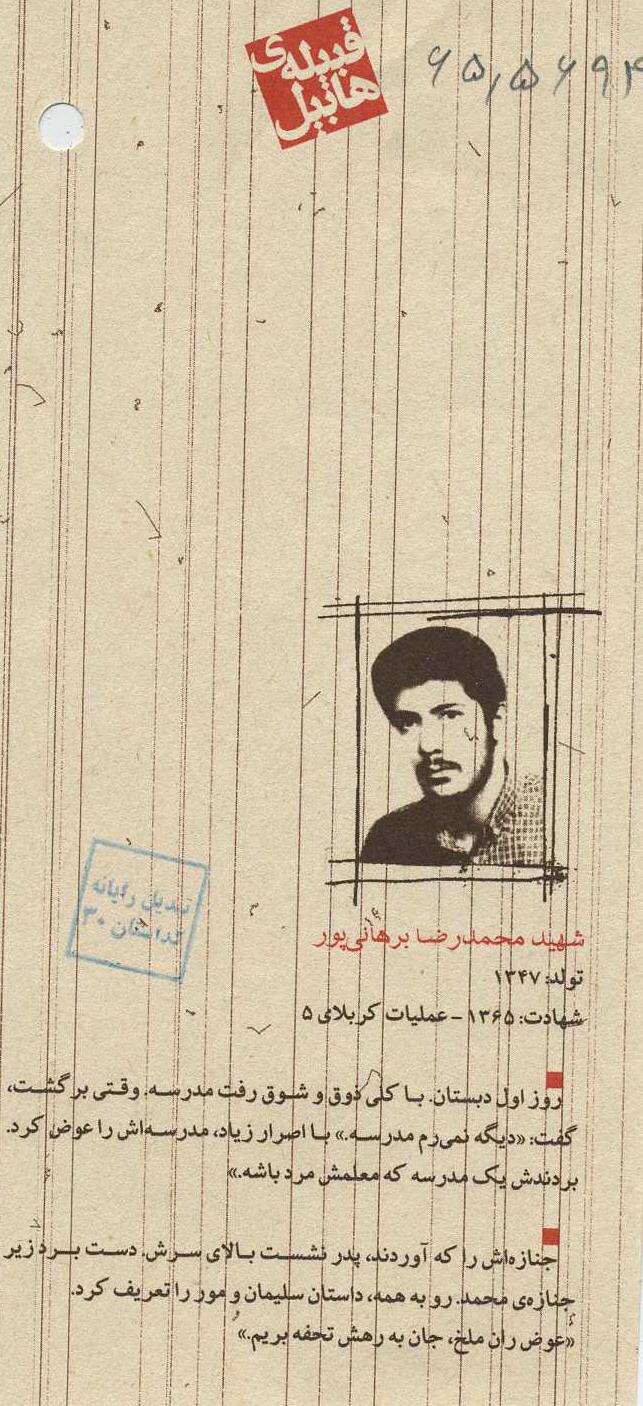 قبیله‌ی
هابیل
۶۵,۵۶۹۴
شهید محمدرضا برهانی‌پور
تولد: ۱۳۴۷
شهادت: ۱۳۶۵ - عملیات کربلای ۵
روز اول دبستان. با کلی ذوق و شوق رفت مدرسه. وقتی برگشت،
گفت: «دیگه نمی‌رم مدرسه.» با اصرار زیاد، مدرسه‌اش را عوض کرد.
بردندش یک مدرسه که معلمش مرد باشه.»
جنازه‌اش را که آوردند، پدر نشست بالای سرش. دست برد زیر
جنازه‌ی محمد. رو به همه، داستان سلیمان و مور را تعریف کرد.
«عوض ران ملخ، جان به رهش تحفه بریم.»